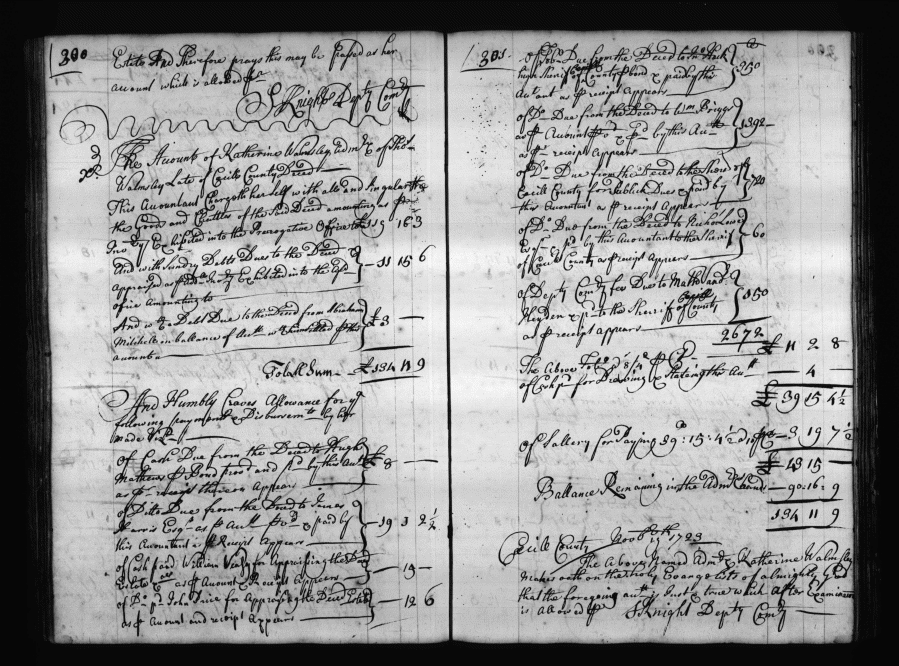 300
Estate And Therefore prays this may be passed as her
account which is allowed of
S Knight Depty Comry
The Account of Katherine Walmsley Admx of Tho
Walmsley Late of Cecill County Deced
This Accountant Chargeth her self with all and Singular the
the Goods and Chattles of the said Deced amounting as pr
Invry Exhibited into the Prerogative Office to 119 16 3
And with Sundry Debts Due to the Deced
Appraised as Invry Exhibited into the sd
office Amounting to 11 15 6
And wth Debt Due to the Deced from Abraham
in ballance of Acctt £3 —
account
Totall Sum £134 11 9
And Humbly Craves Allowance for ye
following payments & Disbursemts by her
made Vizt
Of Cash Due from the Deced to Hugh
Mathews p Bond prov'd and pd by this Acct £8 — —
as p receipt thereon Appears
Of Ditto Due from the Deced to James
Harris Esqr as p Acctt pv'd & paid by 19 3 2½
this Accountant as p Receipt Appears
Of Cash pd William for Appraising the Deced
Estate as p Account & Receipt Appears — 19 —
Of Do pr John Price for Appraising the Deced Estate
as p Account and receipt Appears — 12 6
301
of Tobo Due from the Deced to
high Sheriff County p bond & paid by this
Accot ant as p receipt Appears 250
of Do Due from the Deced to Wm
as p Account pvd & pd by this Acctt 1392
as p receipt Appears
of Do Due from the Deced to the Sheriff of
Cecill County for publick Dues & paid by 720
this Accountant as p receipt Appears
of Do Due from the Deced to
& pd by this Accountant to the Sheriff 60
of Cecill County as p receipt Appears
of Depty Comry fees Due to Matthias Vand
Heyden & pr to the Sheriff of Cecill County 250
as p receipt Appears
2672
The Above Tobo £ 11 2 8
of Cash pd for Drawing & Stateing the Acctt — 4 —
£ 39 15 4½
Of Sallery for Paying 39 : 15 : 4½ 3 19 7½
£ 43 15 —
Ballance Remaining in the Admx hands — 90 : 16 : 9
134 11 9
Cecill County Novr 1723
The Above Named Admx Katherine Walmsley
makes oath on the holy Evangelists of almighty God
that the foregoing acctt is Just & true which After Examinacon
is allowed p S Knight Depty Comry